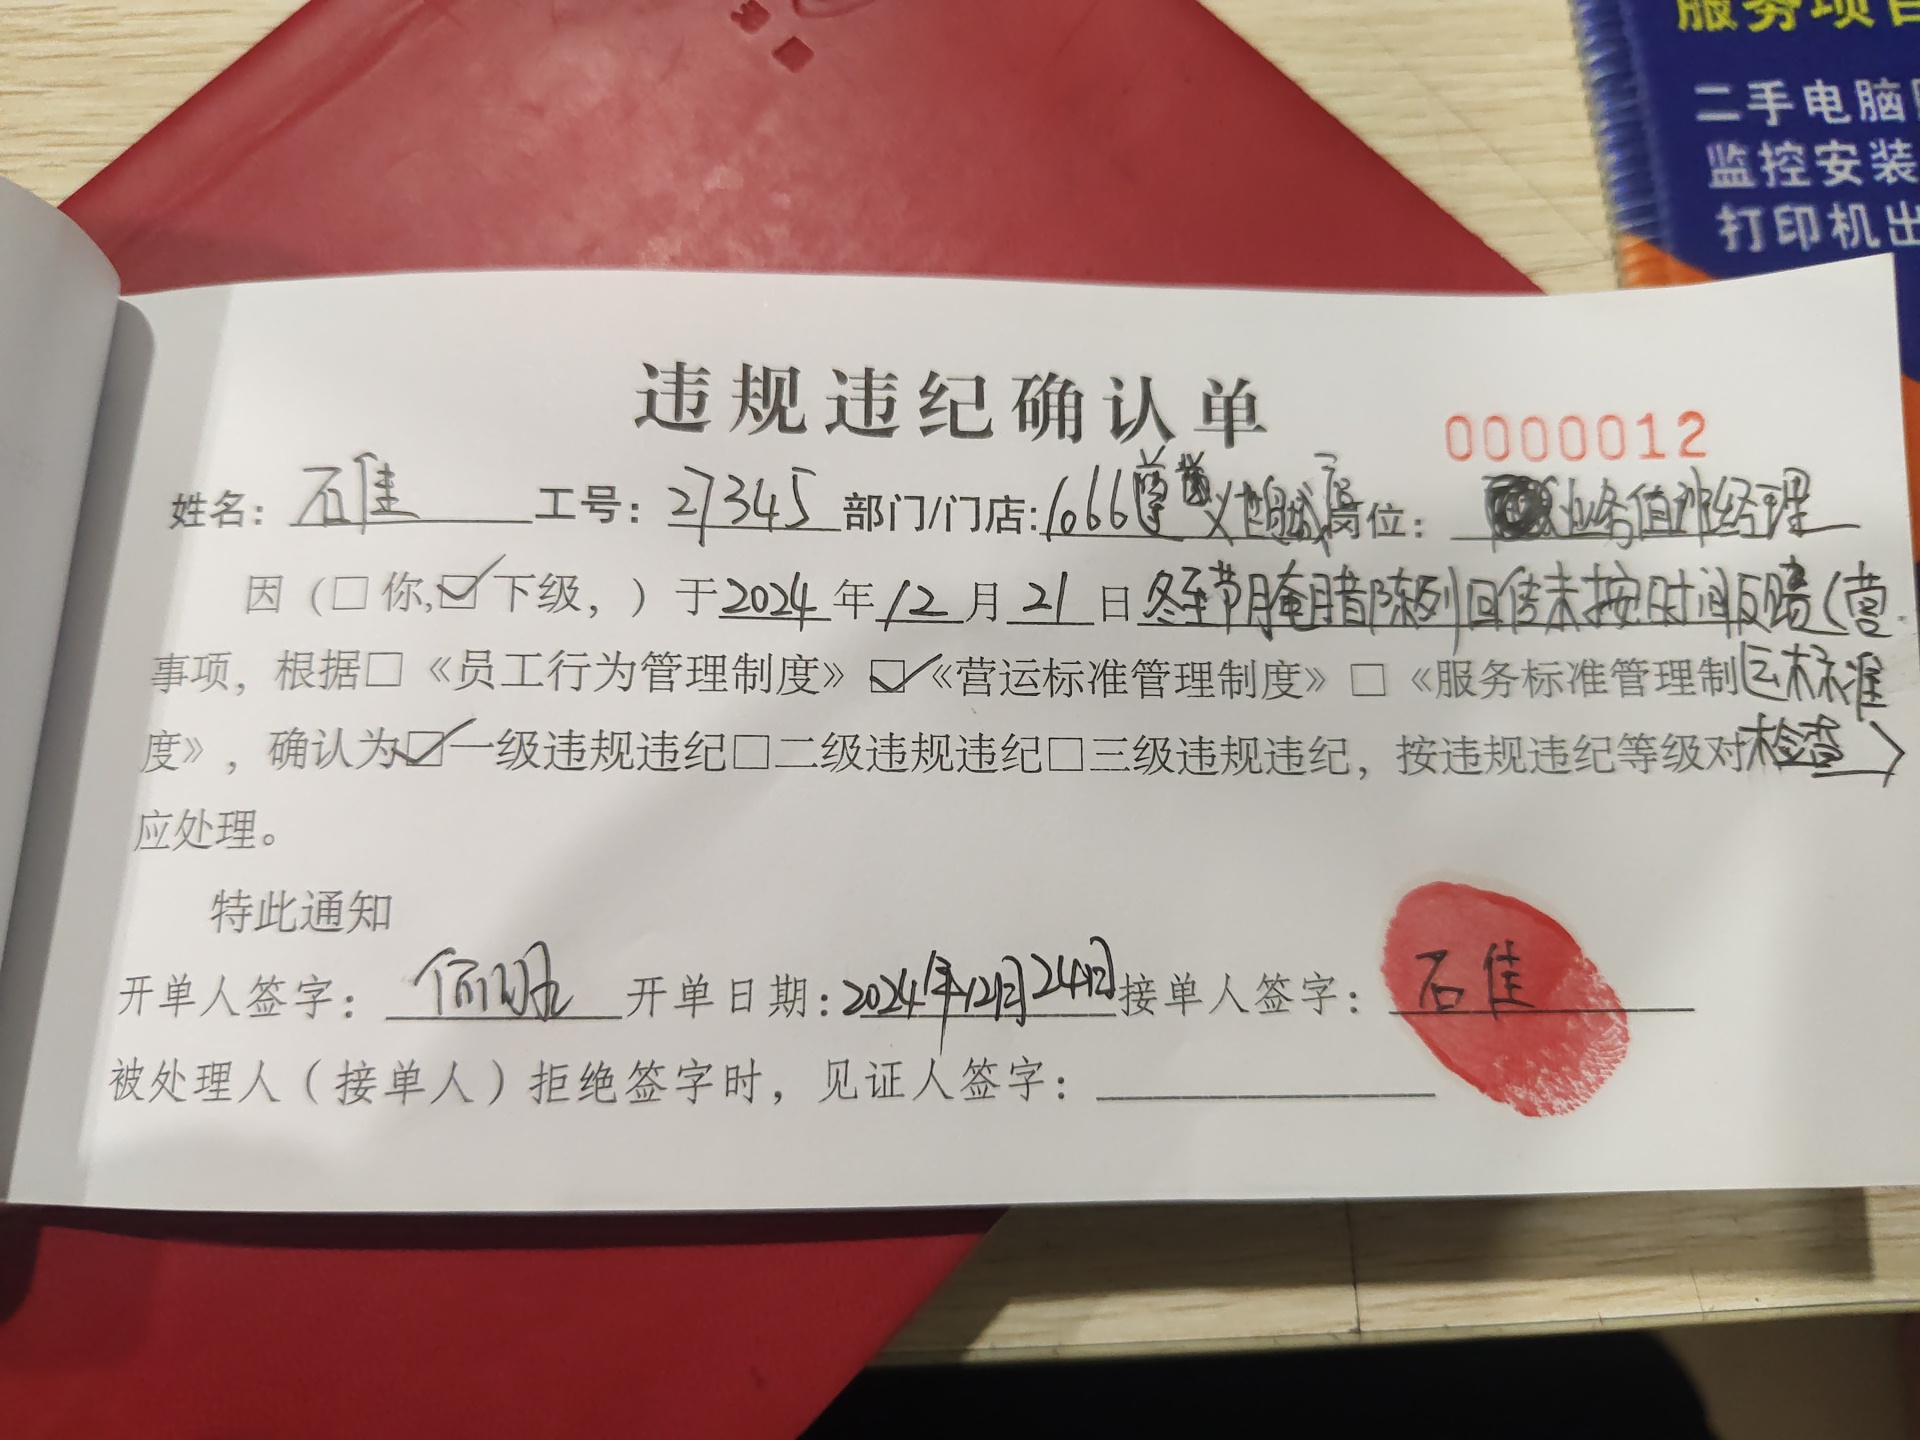 服务项目
二手电脑
监控安装
打印机出
违规违纪确认单
0000012
姓名：石佳 工号：27345 部门/门店：1066遵义 岗位：业务值班经理
因（□你,☑下级，）于2024年12月21日冬至节腌腊陈列回传未按时间反馈（营
事项，根据□《员工行为管理制度》☑《营运标准管理制度》□《服务标准管理制 运标准
度》，确认为☑一级违规违纪□二级违规违纪□三级违规违纪，按违规违纪等级对 检查）
应处理。
特此通知
开单人签字： 开单日期：2024年12月24日 接单人签字：石佳
被处理人（接单人）拒绝签字时，见证人签字：